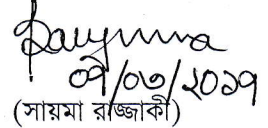 ০৭/০৩/২০১৭
(সায়মা রাজ্জাকী)